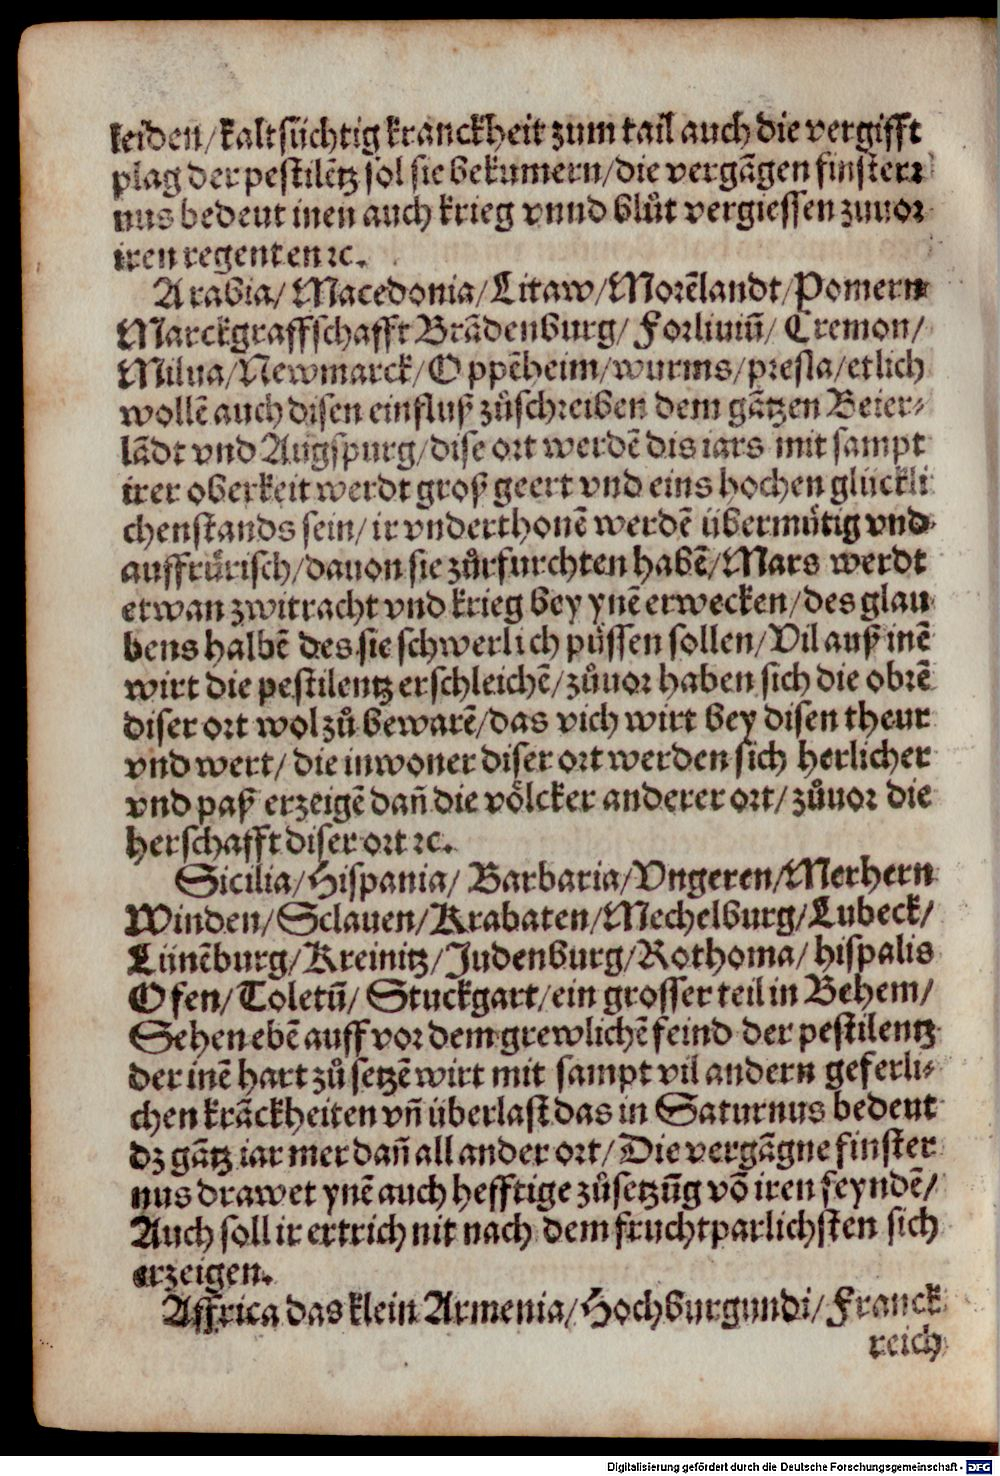 leiden/kaltsüchtig kranckheit zum tail auch die vergifft
plag der pestilētz sol sie bekumern/die vergāgen finster⸗
nus bedeut inen auch krieg vnnd blůt vergiessen zuuor
iren regenten ⁊c.
Arabia/Macedonia/Litaw/Morēlandt/Pomern
Marckgraffschafft Brādenburg/Forliuiū/Cremon/
Milua/Newmarck/Oppēheim/wurms/presla/etlich
wollē auch disen einfluß zůschreiben dem gātzen Beier⸗
lādt vnd Augspurg/dise ort werdē dis iars mit sampt
irer oberkeit werdt groß geert vnd eins hochen glückli
chen stands sein/ir vnderthonē werdē übermůtig vnd
auffrůrisch/dauon sie zůrfurchten habē/Mars werdt
etwan zwitracht vnd krieg bey ynē erwecken/des glau
bens halbē des sie schwerlich půssen sollen/Vil auß inē
wirt die pestilentz erschleichē/zůuor haben sich die obrē
diser ort wol zů bewarē/das vich wirt bey disen theur
vnd wert/die inwoner diser ort werden sich herlicher
vnd paß erzeigē dañ die völcker anderer ort/zůuor die
herschafft diser ort ⁊c.
Sicilia/Hispania/Barbaria/Vngeren/Merhern
Winden/Sclauen/Krabaten/Mechelburg/Lubeck/
Lünēburg/Kreinitz/Judenburg/Rothoma/hispalis
Ofen/Toletū/Stuckgart/ein grosser teil in Behem/
Sehen ebē auff vor dem grewlichē feind der pestilentz
der inē hart zů setzē wirt mit sampt vil andern geferli⸗
chen krāckheiten vñ überlast das in Saturnus bedeut
dz gātz iar mer dañ all ander ort/Die vergāgne finster
nus drawet ynē auch hefftige zůsetzūg vō iren feyndē/
Auch soll ir ertrich nit nach dem fruchtparlichsten sich
erzeigen.
Affrica das klein Armenia/Hochburgundi/Franck
reich
Digitalisierung gefördert durch die Deutsche Forschungsgemeinschaft - DFG